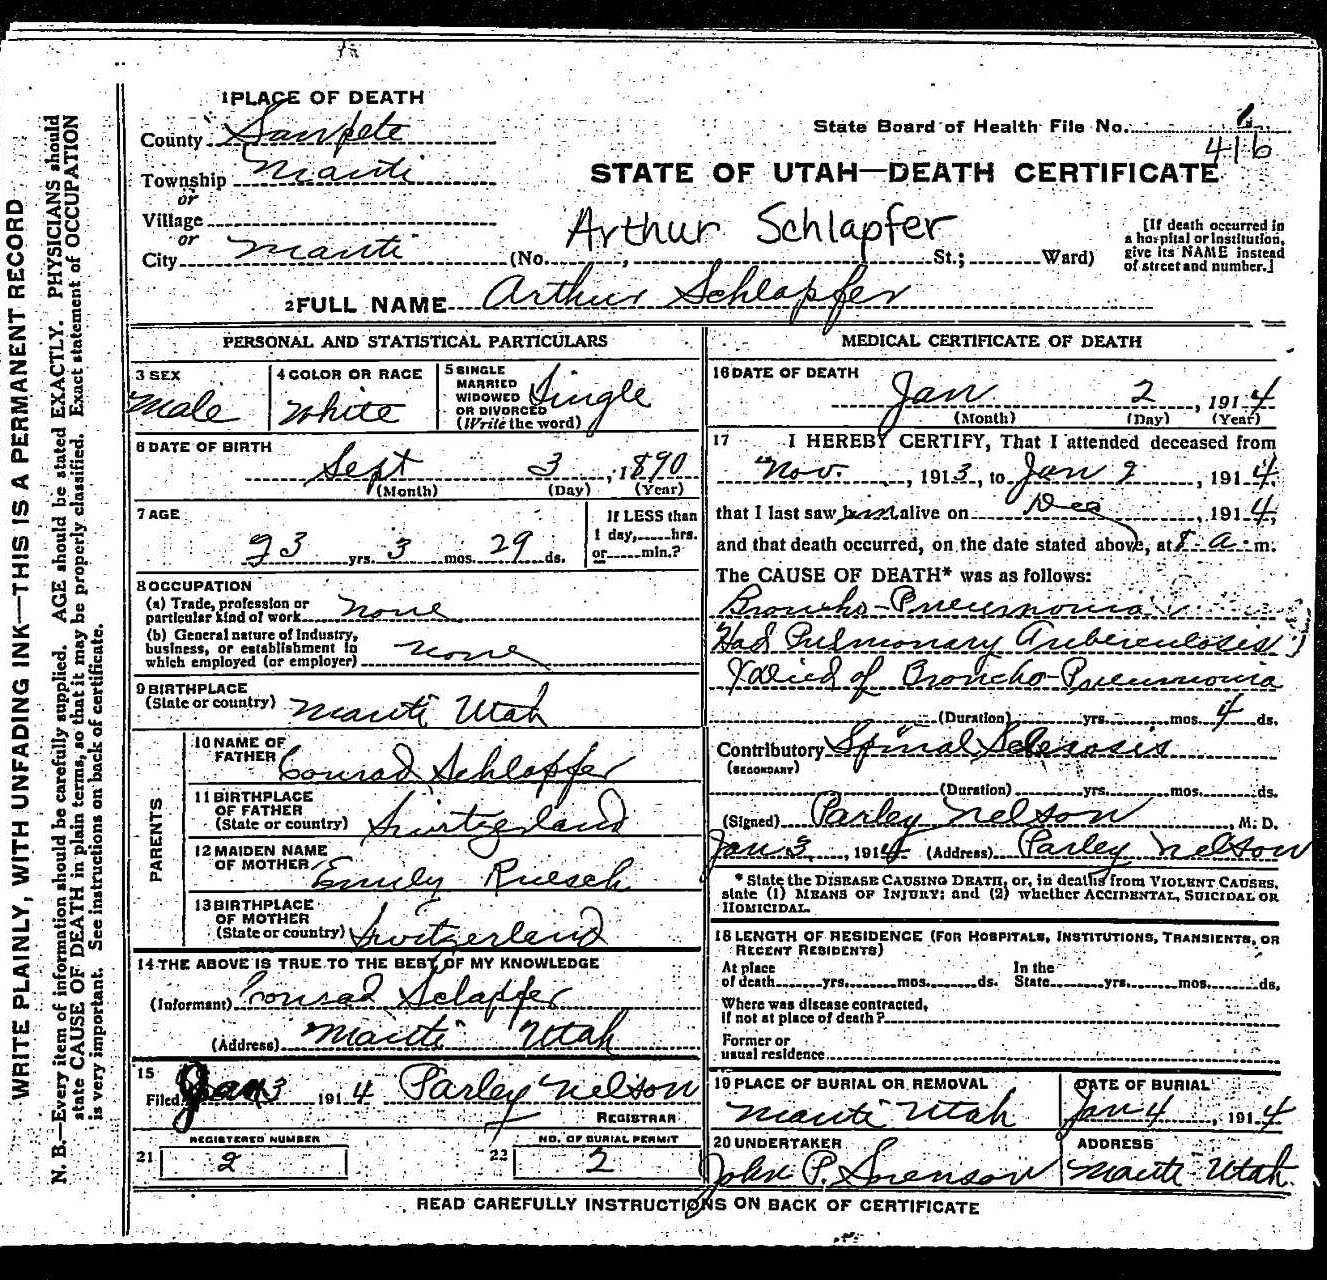 WRITE PLAINLY, WITH UNFADING INK—THIS IS A PERMANENT RECORD
N. B.—Every item of information should be carefully supplied. AGE should be stated EXACTLY. PHYSICIANS should
state CAUSE OF DEATH in plain terms, so that it may be properly classified. Exact statement of OCCUPATION
is very important. See instructions on back of certificate.
1 PLACE OF DEATH
County Sanpete
Township Manti
or
Village
or
City Manti
State Board of Health File No.
416
STATE OF UTAH—DEATH CERTIFICATE
Arthur Schlapfer
(No. , St.; Ward)
[If death occurred in
a hospital or institution,
give its NAME instead
of street and number.]
2 FULL NAME Arthur Schlapfer
PERSONAL AND STATISTICAL PARTICULARS
3 SEX
Male
4 COLOR OR RACE
White
5 SINGLE
MARRIED
WIDOWED
OR DIVORCED
(Write the word)
Single
6 DATE OF BIRTH
Sept 3, 1890
(Month) (Day) (Year)
7 AGE
23 yrs. 3 mos. 29 ds.
If LESS than
1 day, hrs.
or min.?
8 OCCUPATION
(a) Trade, profession or
particular kind of work none
(b) General nature of industry,
business, or establishment in
which employed (or employer) none
9 BIRTHPLACE
(State or country) Manti Utah
PARENTS
10 NAME OF
FATHER Conrad Schlapfer
11 BIRTHPLACE
OF FATHER
(State or country) Switzerland
12 MAIDEN NAME
OF MOTHER Emily Ruesch
13 BIRTHPLACE
OF MOTHER
(State or country) Switzerland
14 THE ABOVE IS TRUE TO THE BEST OF MY KNOWLEDGE
(Informant) Conrad Sclapfer
(Address) Manti Utah
15
Filed Jan 3 1914 Parley Nelson
REGISTRAR
REGISTERED NUMBER
21 2
NO. OF BURIAL PERMIT
22 2
MEDICAL CERTIFICATE OF DEATH
16 DATE OF DEATH
Jan 2, 1914
(Month) (Day) (Year)
17 I HEREBY CERTIFY, That I attended deceased from
Nov. , 1913, to Jan 2, 1914,
that I last saw him alive on Dec , 1914,
and that death occurred, on the date stated above, at 8 a. m.
The CAUSE OF DEATH* was as follows:
Broncho-Pneumonia
Had Pulmonary Tuberculosis
& died of Broncho-Pneumonia
(Duration) yrs. mos. 4 ds.
Contributory Spinal Sclerosis
(SECONDARY)
(Duration) yrs. mos. ds.
(Signed) Parley Nelson, M. D.
Jan 3, 1914 (Address) Parley Nelson
* State the DISEASE CAUSING DEATH, or, in deaths from VIOLENT CAUSES,
state (1) MEANS OF INJURY; and (2) whether ACCIDENTAL, SUICIDAL OR
HOMICIDAL.
18 LENGTH OF RESIDENCE (FOR HOSPITALS, INSTITUTIONS, TRANSIENTS, OR
RECENT RESIDENTS)
At place
of death yrs. mos. ds.
In the
State yrs. mos. ds.
Where was disease contracted,
if not at place of death?
Former or
usual residence
19 PLACE OF BURIAL OR REMOVAL
Manti Utah
DATE OF BURIAL
Jan 4, 1914
20 UNDERTAKER
John P. Sorenson
ADDRESS
Manti Utah.
READ CAREFULLY INSTRUCTIONS ON BACK OF CERTIFICATE